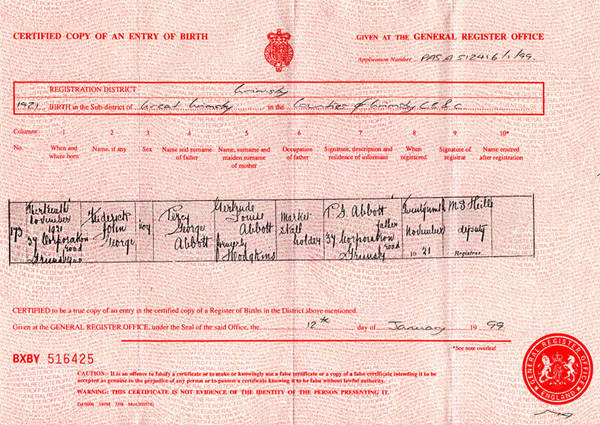 CERTIFIED COPY OF AN ENTRY OF BIRTH
GIVEN AT THE GENERAL REGISTER OFFICE
Application Number PAS A 512416/1/99
REGISTRATION DISTRICT Grimsby
1921 BIRTH in the Sub-district of Great Grimsby in the Counties of Grimsby C.B. & C.
Columns:- 1 2 3 4 5 6 7 8 9 10*
No. When and where born Name, if any Sex Name and surname of father Name, surname and maiden surname of mother Occupation of father Signature, description and residence of informant When registered Signature of registrar Name entered after registration
173 Thirteenth November 1921 37 Corporation road Grimsby Frederick John George Boy Percy George Abbott Gertrude Louis Abbott formerly Hodgkins Market Stall holder P G Abbott father 37 Corporation road Grimsby November 1921 deputy Registrar
CERTIFIED to be a true copy of an entry in the certified copy of a Register of Births in the District above mentioned.
Given at the GENERAL REGISTER OFFICE, under the Seal of the said Office, the 12th day of January 19 99
*See note overleaf
BXBY 516425
CAUTION:- It is an offence to falsify a certificate or to make or knowingly use a false certificate or a copy of a false certificate intending it to be
accepted as genuine to the prejudice of any person or to possess a certificate knowing it to be false without lawful authority.
WARNING: THIS CERTIFICATE IS NOT EVIDENCE OF THE IDENTITY OF THE PERSON PRESENTING IT.
GENERAL REGISTER OFFICE ENGLAND